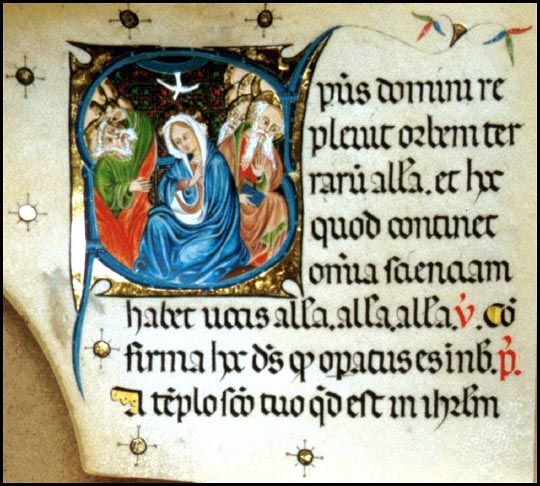 Sp̄us domini re
pleuit orbem ter
rarū all̄a. et hoc
quod continet
om̄ia scienciam
habet uocis all̄a. all̄a. all̄a. V̄. Cō
firma hoc d̄s q̄ opatus es in nob̄. P̄.
A tēplo sc̄o tuo q̄d est in ihrl̄m